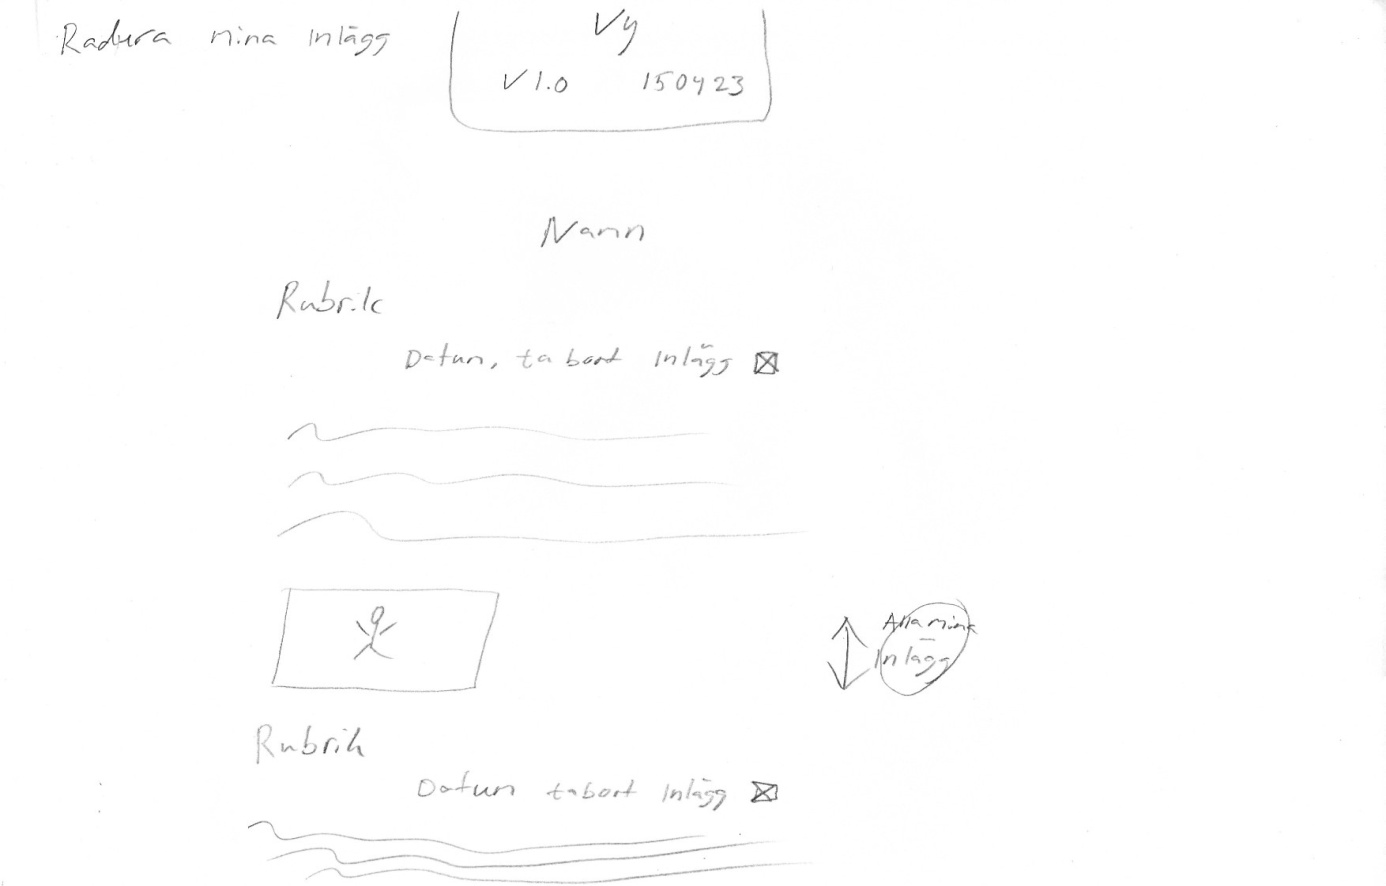 Radera mina inlägg
Vy
V 1.0 150423
Namn
Rubrik
Datum, ta bort inlägg
Alla mina
inlägg
Rubrik
Datum ta bort inlägg